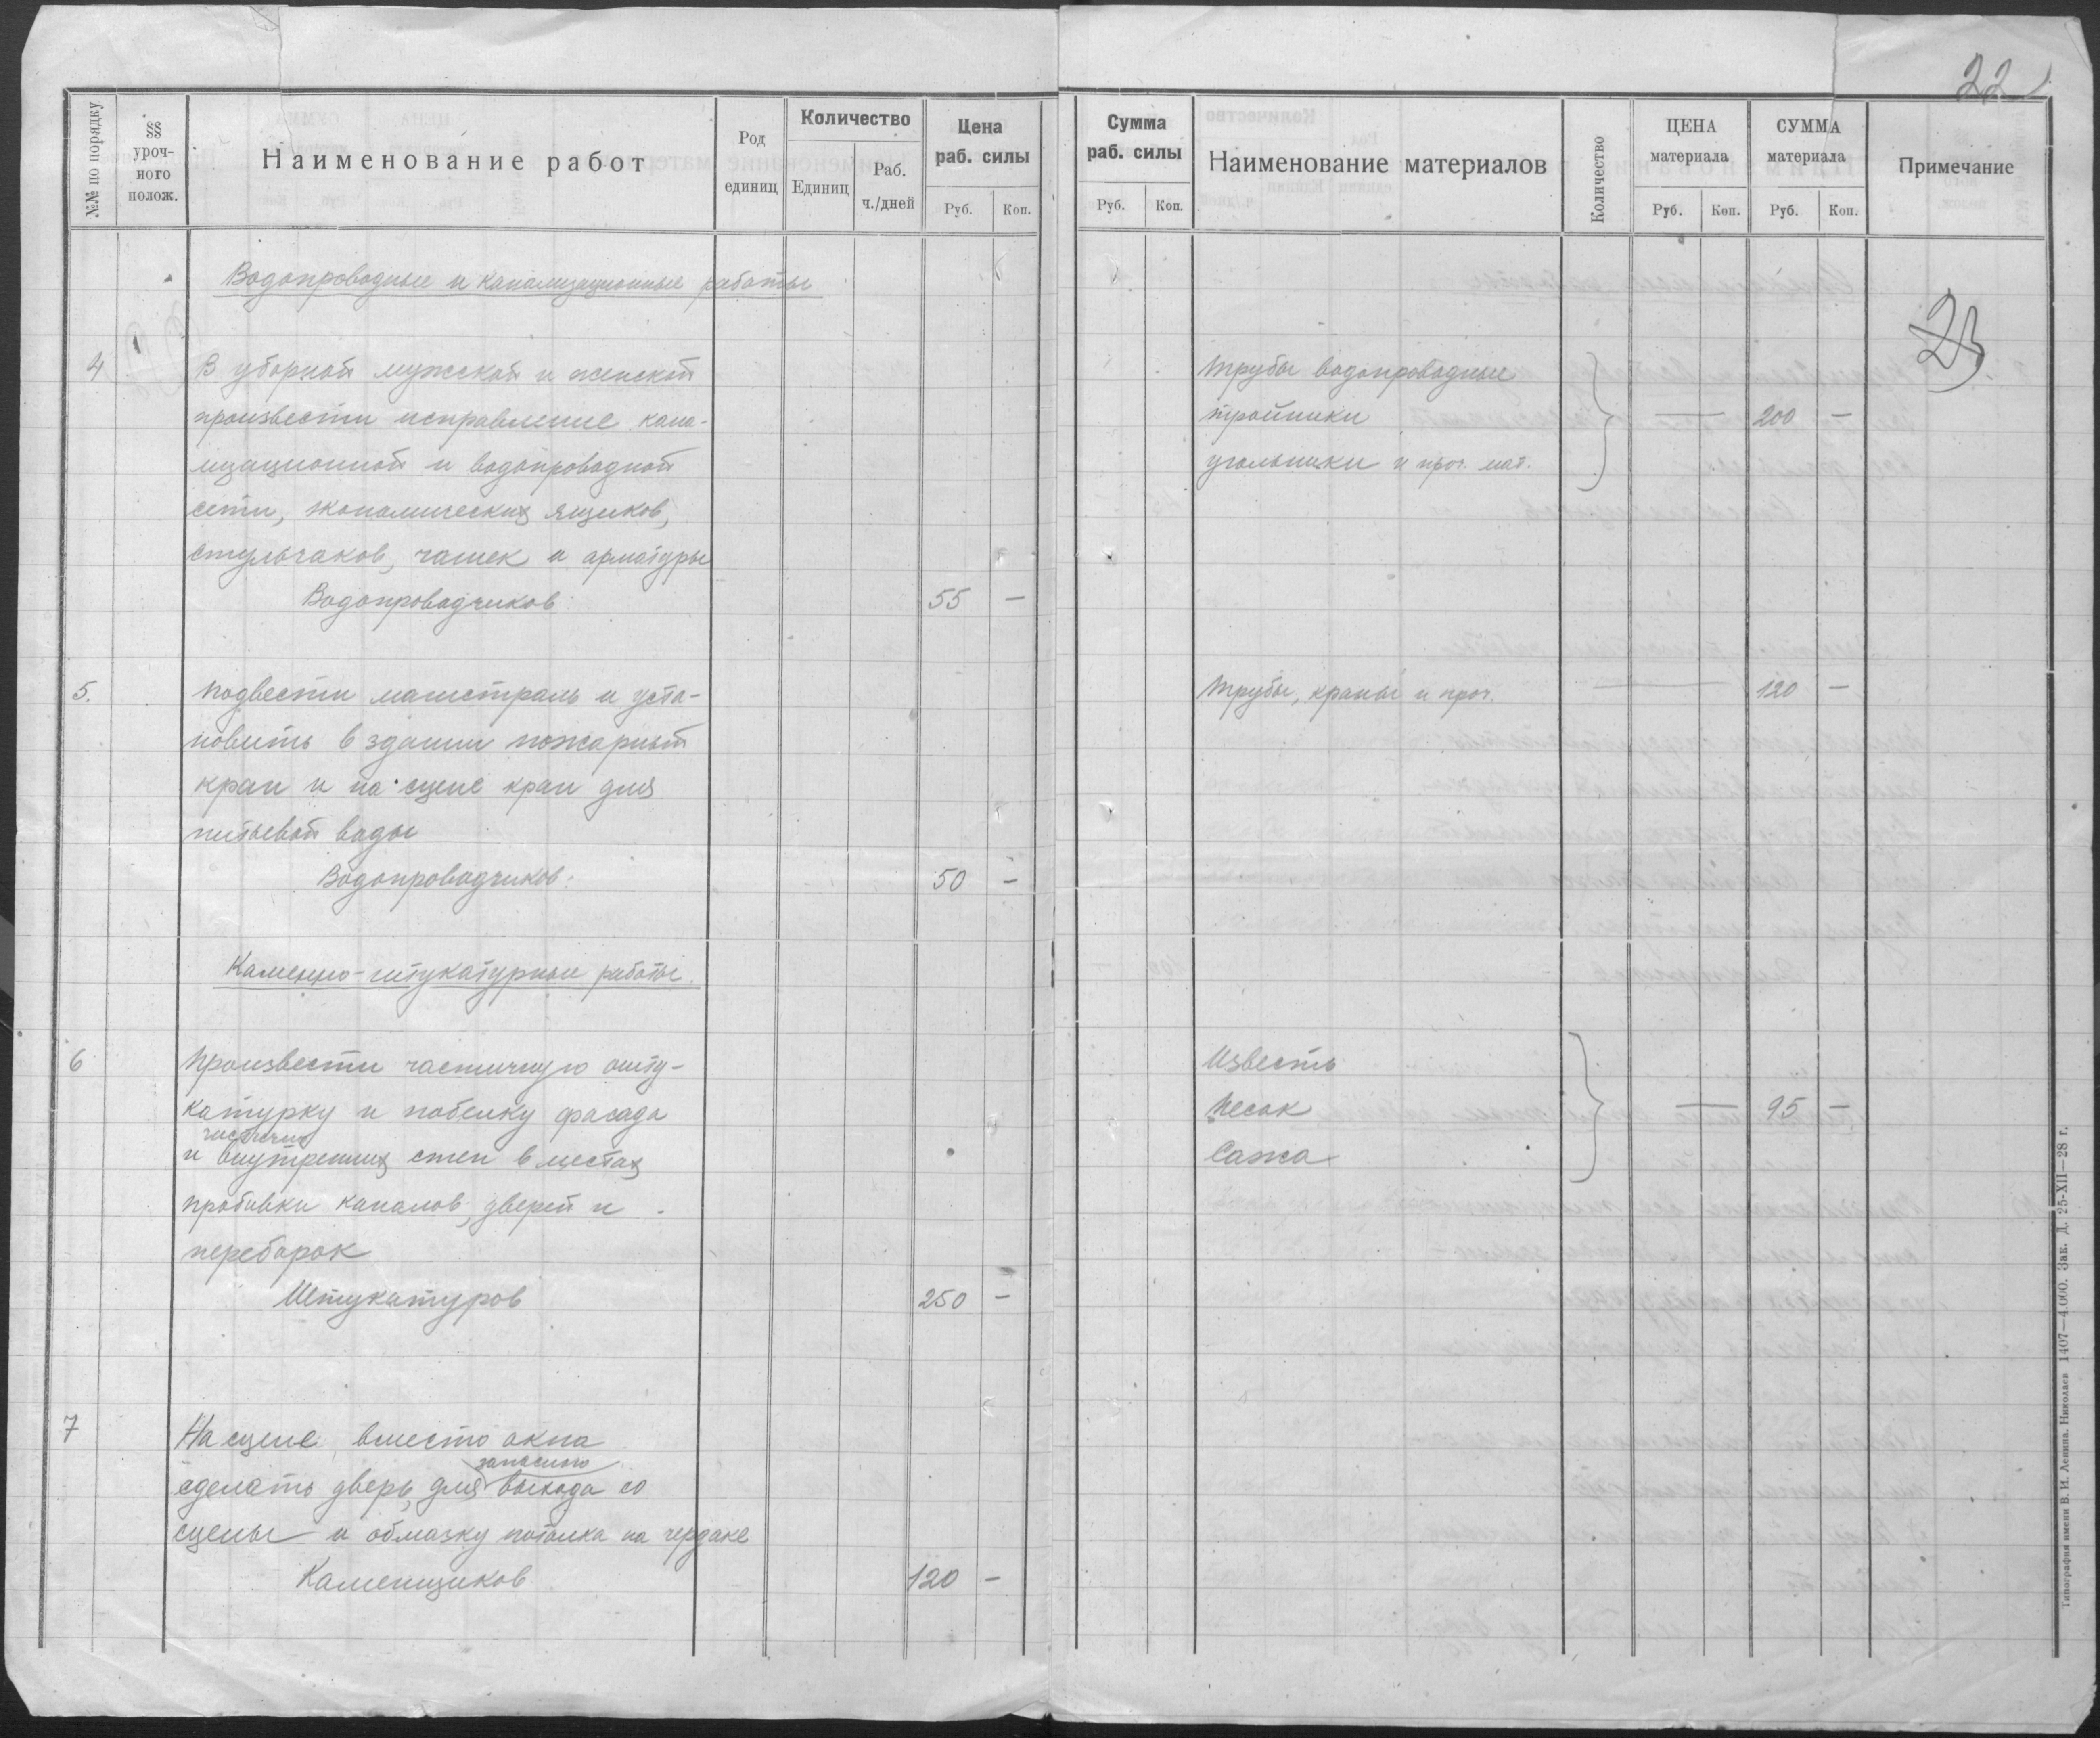 №№ по порядку
§§ уроч-ного полож.
Наименование работ
Род единиц
Количество
Единиц
Раб. ч./дней
Цена раб. силы
Руб.
Коп.
Водопроводные и канализационные работы
4
В уборной мужской и женской
произвести исправление кана-
лизационной и водопроводной
сети, экономических ящиков,
стульчаков, чашек и арматуры
Водопроводчиков 55 —
5.
Подвести магистраль и уста-
новить в здании пожарный
кран и на сцене кран для
питьевой воды
Водопроводчиков. 50 —
Каменно-штукатурные работы.
6
Произвести частичную ошту-
катурку и побелку фасада
частично
и внутренних стен в местах
пробивки каналов, дверей и
переборок
Штукатуров 250 —
7
На сцене вместо окна
запасного
сделать дверь для выхода со
сцены и обмазку потолка на чердаке
Каменщиков 120 —
22
Сумма раб. силы
Руб.
Коп.
Наименование материалов
Количество
ЦЕНА материала
Руб.
Коп.
СУММА материала
Руб.
Коп.
Примечание
23
Трубы водопроводные
тройники — 200 —
угольники и проч. мат.
Трубы, краны и проч. — 120 —
Известь
Песок — 95 —
Сажа
Типография имени В. И. Ленина. Николаев 1407—4.000. Зак. Д. 25-XII—28 г.